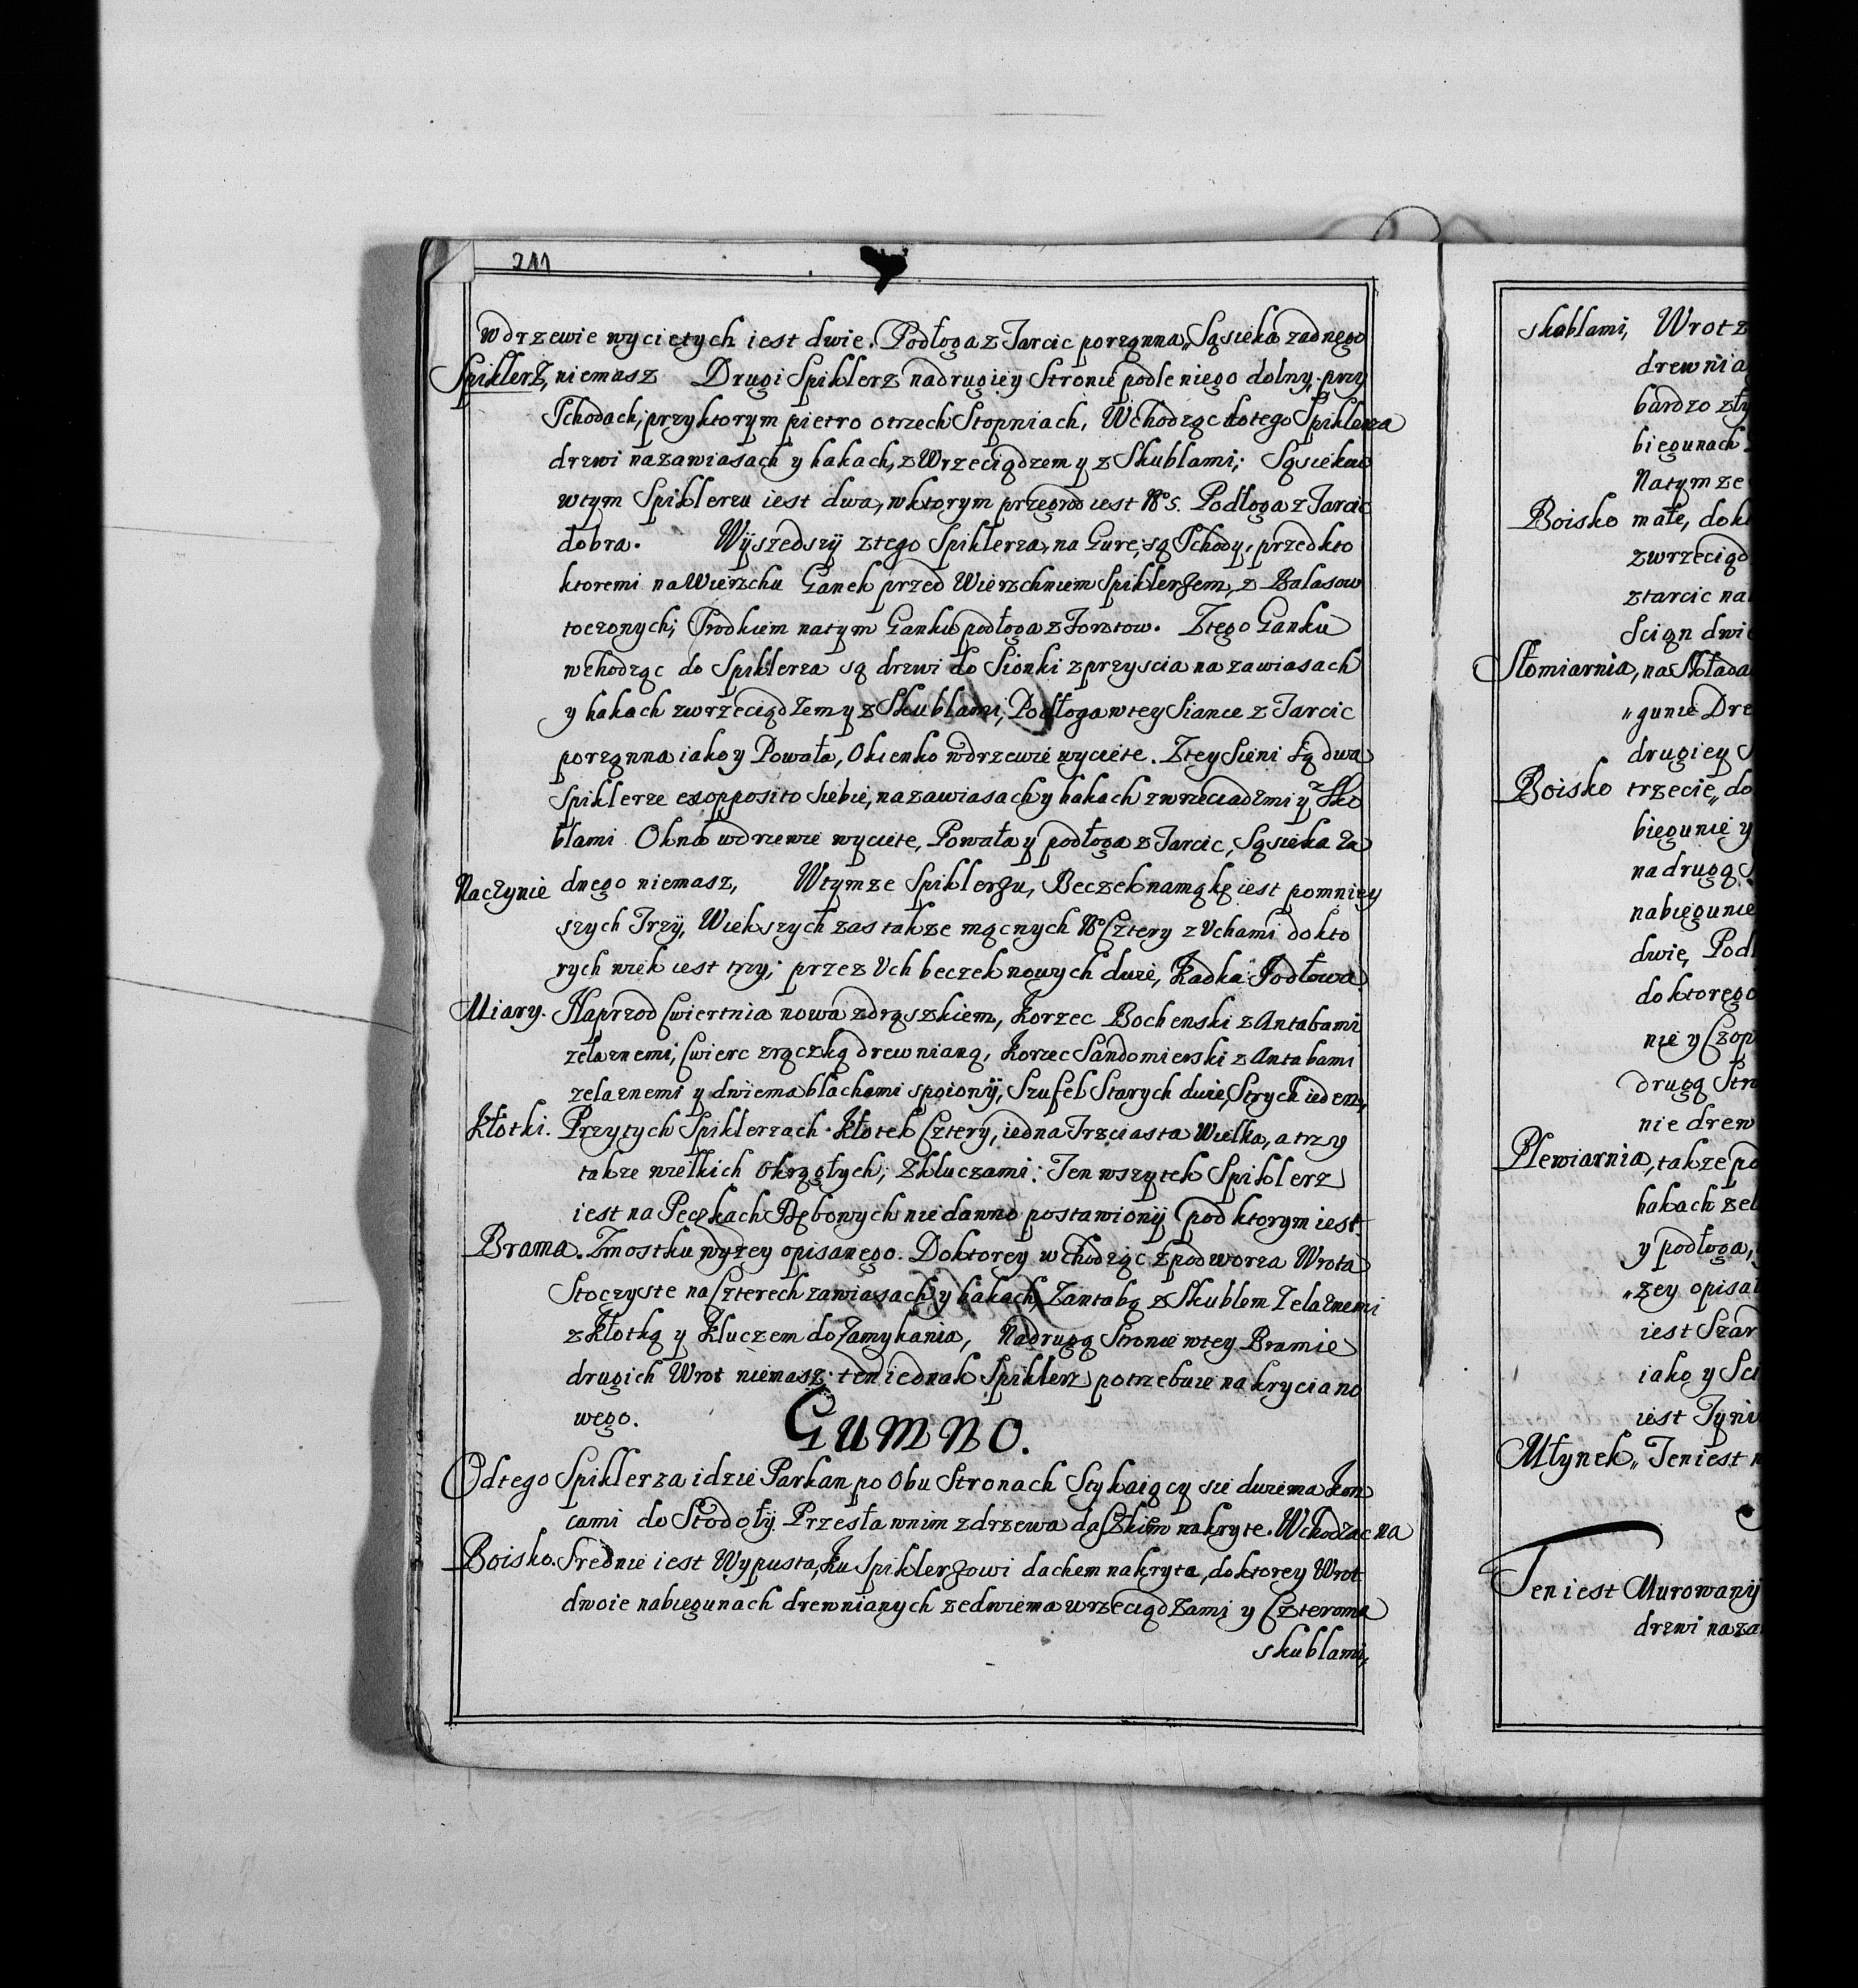 211
wdrzewie wycietych iest dwie. Podłoga z Tarcic porządna, Sąsieka zadnego
Spiklerz, niemasz Drugi Spiklerz nadrugiey Stronie podle niego dolny, przy
Schodach, przyktorym pietro otrzech Stopniach, Wchodząc dotego Spiklerza
drzwi nazawiasach y hakach, z Wrzeciądzem y z Skublami; Sąsiekow
wtym Spiklerzu iest dwa, wktorym przegrod iest No 5. Podłoga z Tarcic
dobra. Wÿszedszÿ ztego Spiklerza, na Gure, są Schody, przed kto
ktoremi na Wierzchu Ganek przed Wierzchniem Spiklerzem, z Balasow
toczonych; Srodkiem natym Ganku podłoga z Forsztow. Ztego Ganku
wchodząc do Spiklerza są drzwi do Sionki zprzyscia na zawiasach
y hakach zwrzeciądzem y z Skublami, Podłoga wtey Siance z Tarcic
porządna iako y Powała, Okienko wdrzewie wyciete. Ztey Sieni są dwa
Spiklerze exopposito siebie, na zawiasach y hakach zwrzeciadzmi y z Sko
blami Okna wdrzewie wyciete, Powała y podłoga z Tarcic, Sąsieka za
Naczynie dnego niemasz, Wtymze Spiklerzu, Beczek namąkę iest pomniey
szych Trzÿ, Wiekszych zas takze mącnych No Cztery z Uchami dokto
rych wiek iest trzy; przez Uch beczek nowych dwie, Kadka Jodłowa
Miary. Naprzod Cwiertnia nowa zdrązkiem, Korzec Bochenski z Antabami
zelaznemi, Cwierc zrączką drewnianą, Korzec Sandomierski z Antabami
zelaznemi y dwiema blachami spoionÿ, Szufel Starych dwie, Strych ieden,
Kłotki. Przytych Spiklerzach Kłotek Cztery, iedna Trzciasta Wielka, a trzy
takze wielkich Okrągłych, Zkluczami: Ten wszytek Spiklerz
iest na Peczkach Dębowych niedawno postawionÿ pod ktorym iest
Brama. Zmostku wyzey opisanego. Doktorey wchodząc zpodworza Wrota
Stoczyste na Czterech zawiasach y hakach, Zantabą z Skublem Zelaznemi
z Kłotką y Kluczem do Zamykania, Nadrugą Stronie wtey Bramie
drugich Wrot niemasz ten iednak Spiklerz potrzebuie nakrycia no
wego.
GUMNO.
Odtego Spiklerza idzie Parkan po Obu Stronach Stykaiący sie dwiema Kon
cami do Stodołÿ Przesła wnim zdrzewa daszkiem nakryte. Wchodząc na
Boisko. Srednie iest Wypusta, ku Spiklerzowi dachem nakryta, doktorey Wrot
dwoie nabiegunach drewnianych zedwiema wrzeciądzami y Czterema
skublami,
skablami, Wrot z
bardzo zły
biegunach
Natym ze
Boisko małe, dok
zwrzeciąd
ztarcic na
Słomiarnia, na Składa
"gunie Dre
drugiey S
Boisko trzecie, do
biegunie y
nadrugą S
nabiegunie
dwie, Podł
doktorego
nie y Czop
drugą Str
nie drew
Plewiarnia, takze po
hakach zel
y podłoga,
"zey opisa
iest Szar
iako y Sci
Młynek, Ten iest
Ten iest Murowanÿ
drzwi na za